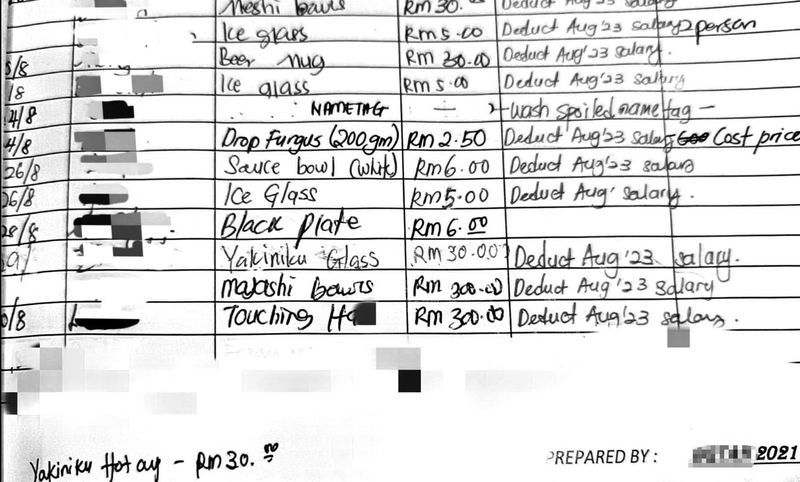 Meshi bowls RM 30. Deduct Aug'23 salary
Ice glass RM 5.00 Deduct Aug'23 salary 2 person
/8 Beer mug RM 30.00 Deduct Aug'23 salary.
/8 Ice glass RM 5.00 Deduct Aug'23 salary
4/8 NAMETAG — wash spoiled name tag —
4/8 Drop Fungus (200gm) RM 2.50 Deduct Aug'23 salary Cost price
26/8 Sauce bowl (white) RM 6.00 Deduct Aug'23 salary
26/8 Ice Glass RM 5.00 Deduct Aug' salary.
28/8 Black Plate RM 6.00
Yakiniku Glass RM 30.00 Deduct Aug'23 salary.
bowls RM 300.00 Deduct Aug'23 salary
/8 Touching RM 300.00 Deduct Aug'23 salary.
Yakiniku Hot – RM 30.00
PREPARED BY : 2021